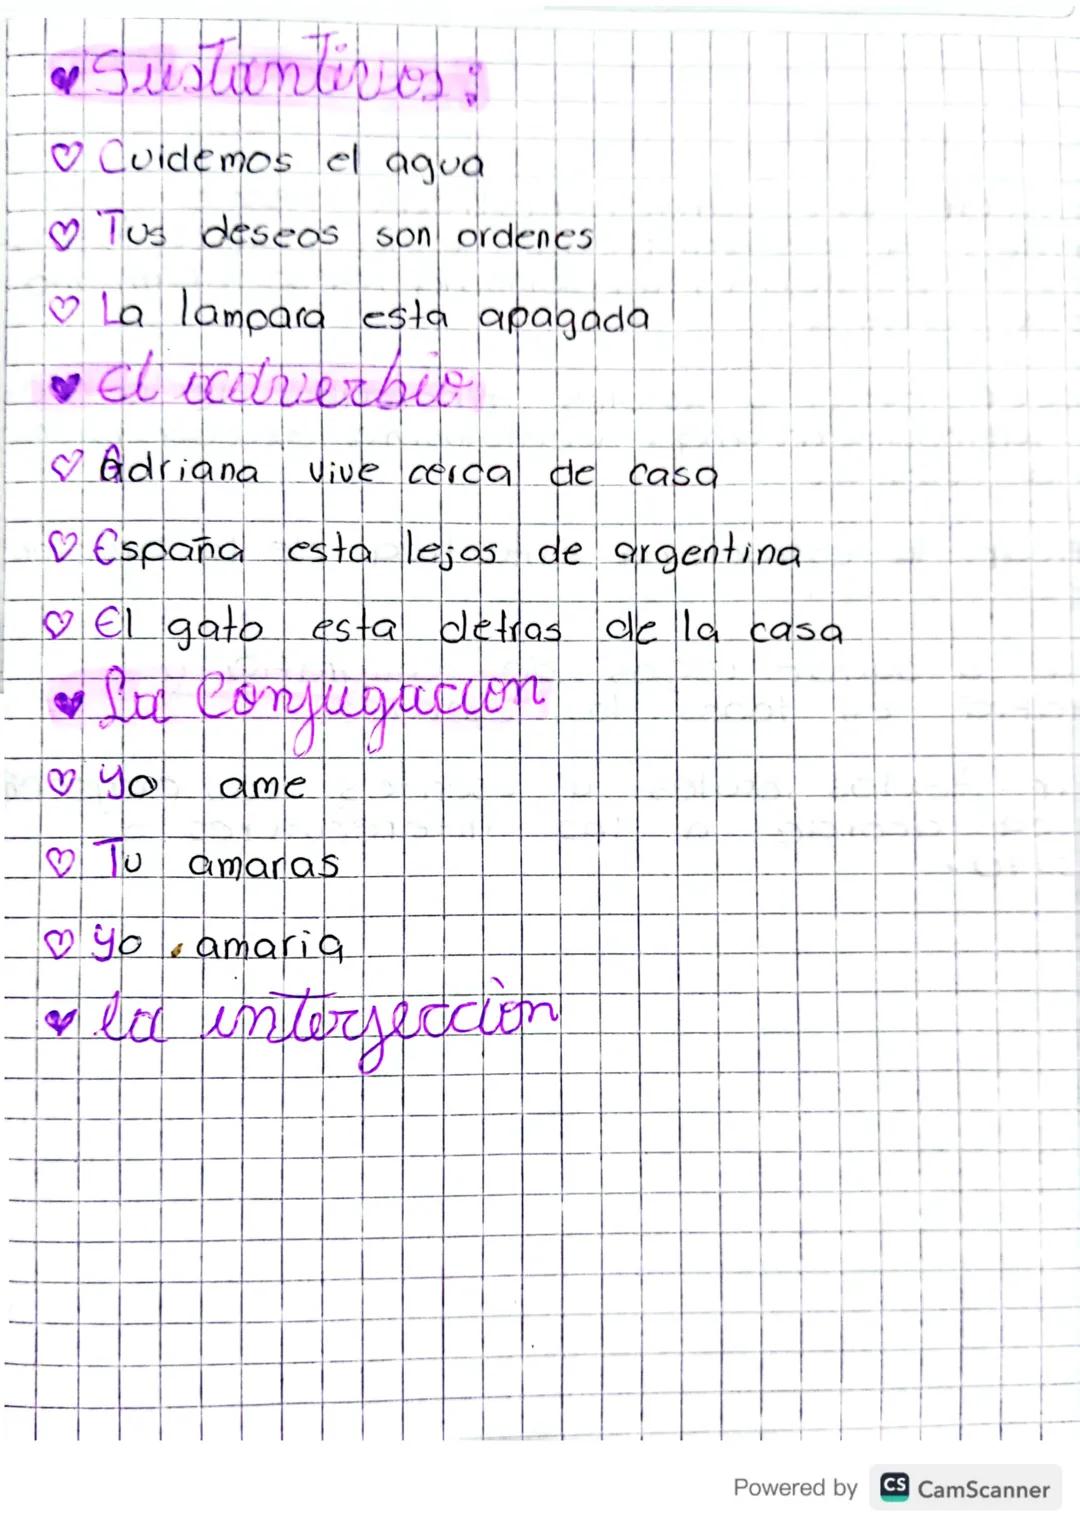 Sustantivos:
Cuidemos el agua
Tus deseos son ordenes
La lampara esta apagada
El adverbio
Adriana vive cerca de casa
España esta lejos de argentina
El gato esta detras de la casa
La Conjugacion
yo ame
Tu amaras
yo amaria
la interjecciòn
Powered by CS CamScanner